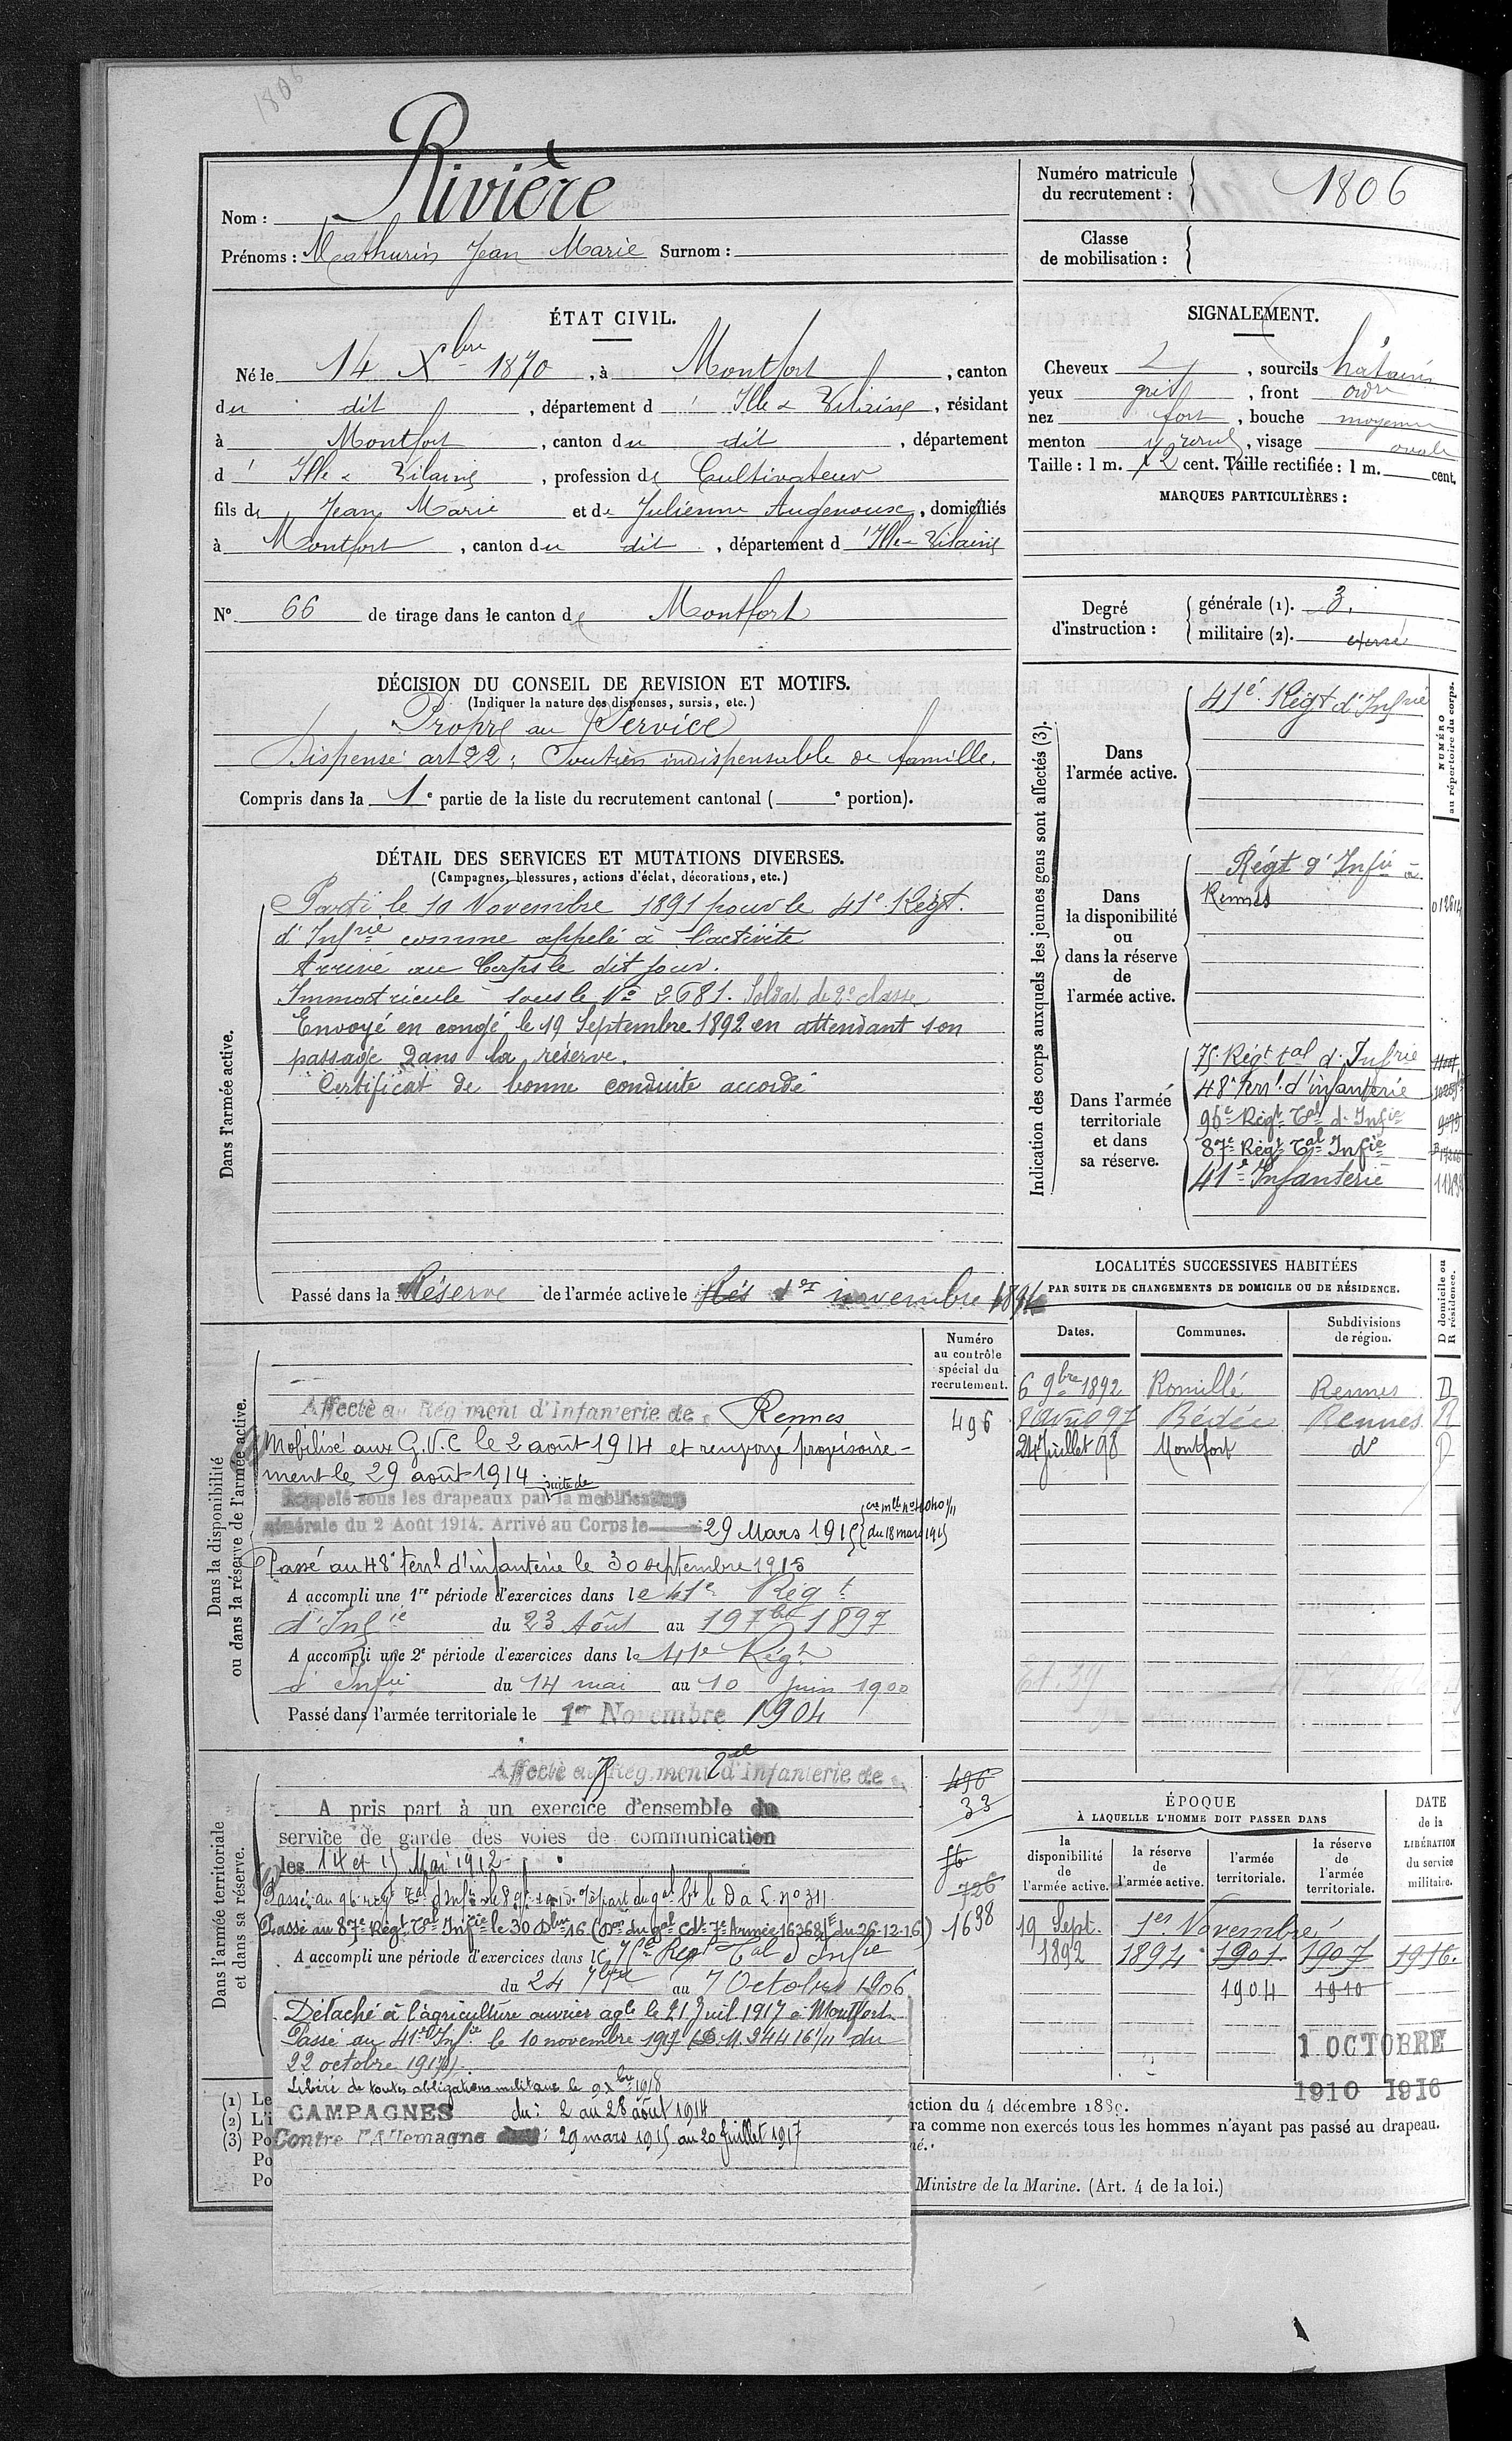 1806
Nom : Rivière
Prénoms : Mathurin Jean Marie Surnom :
Numéro matricule du recrutement : 1806
Classe de mobilisation :
ÉTAT CIVIL.
Né le 14 Xbre 1870, à Montfort, canton
du dit, département d' Ille & Vilaine, résidant
à Montfort, canton du dit, département
d' Ille & Vilaine, profession de Cultivateur
fils de Jean Marie et de Julienne Augenouse, domiciliés
à Montfort, canton du dit, département d'Ille-Vilaine
No 66 de tirage dans le canton de Montfort
SIGNALEMENT.
Cheveux, sourcils châtains
yeux gris, front ordre
nez fort, bouche moyenne
menton rond, visage ovale
Taille : 1 m. 72 cent. Taille rectifiée : 1 m. cent.
MARQUES PARTICULIÈRES :
Degré d'instruction :
générale (1). 3.
militaire (2). exercé
DÉCISION DU CONSEIL DE REVISION ET MOTIFS.
(Indiquer la nature des dispenses, sursis, etc.)
Propre au Service
Dispensé art 22 : Soutien indispensable de famille.
Compris dans la 1e partie de la liste du recrutement cantonal ( e portion).
DÉTAIL DES SERVICES ET MUTATIONS DIVERSES.
(Campagnes, blessures, actions d'éclat, décorations, etc.)
Dans l'armée active.
Parti le 10 Novembre 1891 pour le 41e Régt.
d'Infrie comme appelé à l'activité
Arrivé au Corps le dit jour.
Immatriculé sous le No 2681. Soldat de 2e classe
Envoyé en congé le 19 Septembre 1892 en attendant son
passage dans la réserve.
Certificat de bonne conduite accordé
Passé dans la Réserve de l'armée active le 1er novembre 1894
Indication des corps auxquels les jeunes gens sont affectés (3).
NUMÉRO au répertoire du corps.
Dans l'armée active.
41e Régt d'Infrie
Dans la disponibilité ou dans la réserve de l'armée active.
Régt d'Infie à
Rennes
Dans l'armée territoriale et dans sa réserve.
75e Régt tal d'Infrie
48e terrl d'infanterie
96e Régt Tal d'Infie 9079
87e Régt Tal Infie
41e Infanterie
LOCALITÉS SUCCESSIVES HABITÉES
PAR SUITE DE CHANGEMENTS DE DOMICILE OU DE RÉSIDENCE.
Dates. Communes. Subdivisions de région. D domicile ou R résidence.
6 9bre 1892 Romillé Rennes D
8 Avril 97 Bédée Rennes R
24 Juillet 98 Montfort do R
Numéro au contrôle spécial du recrutement.
496
Dans la disponibilité ou dans la réserve de l'armée active.
Affecté au Régiment d'Infanterie de Rennes
Mobilisé aux G.V.C le 2 août 1914 et renvoyé provisoire-
ment le 29 août 1914
Rappelé sous les drapeaux par suite de la mobilisation
générale du 2 Août 1914. Arrivé au Corps le 29 Mars 1915 du 18 mars 1915
Passé au 48e terrl d'infanterie le 30 septembre 1915
A accompli une 1re période d'exercices dans le 41e Régt
d'Infie du 23 Août au 19 7bre 1897
A accompli une 2e période d'exercices dans le 41e Régt
d'Infie du 14 mai au 10 Juin 1900
Passé dans l'armée territoriale le 1er Novembre 1904
Dans l'armée territoriale et dans sa réserve.
Affecté au Régiment d'Infanterie de
496
33
A pris part à un exercice d'ensemble du
service de garde des voies de communication
les 14 et 15 Mai 1912
726
1638
Passé au 87e Régt Tal Infie le 30 Dbre 16 (Don du gal Cdt 7e Armée 16368/E du 26-12-16)
A accompli une période d'exercices dans le 75e Régt Tal d'Infie
du 24 7bre au 7 Octobre 1906
Détaché à l'agriculture ouvrier agle le 21 Juil. 1917 à Montfort
Passé au 41e Infie le 10 novembre 1917 (D.M. 24416 1/11 du
22 octobre 1917).
Libéré de toutes obligations militaires le 9 Xbre 1918
CAMPAGNES du : 2 au 28 août 1914
Contre l'Allemagne : 29 mars 1915 au 20 juillet 1917
ÉPOQUE
À LAQUELLE L'HOMME DOIT PASSER DANS
la disponibilité de l'armée active. la réserve de l'armée active. l'armée territoriale. la réserve de l'armée territoriale.
DATE de la LIBÉRATION du service militaire.
19 Sept. 1er Novembre
1892 1894 1901 1907 1916.
1904 1910
1 OCTOBRE
1910 1916
(1) Le
(2) L'i
(3) Po
Po
Po
iction du 4 décembre 1889.
ra comme non exercés tous les hommes n'ayant pas passé au drapeau.
né.
Ministre de la Marine. (Art. 4 de la loi.)